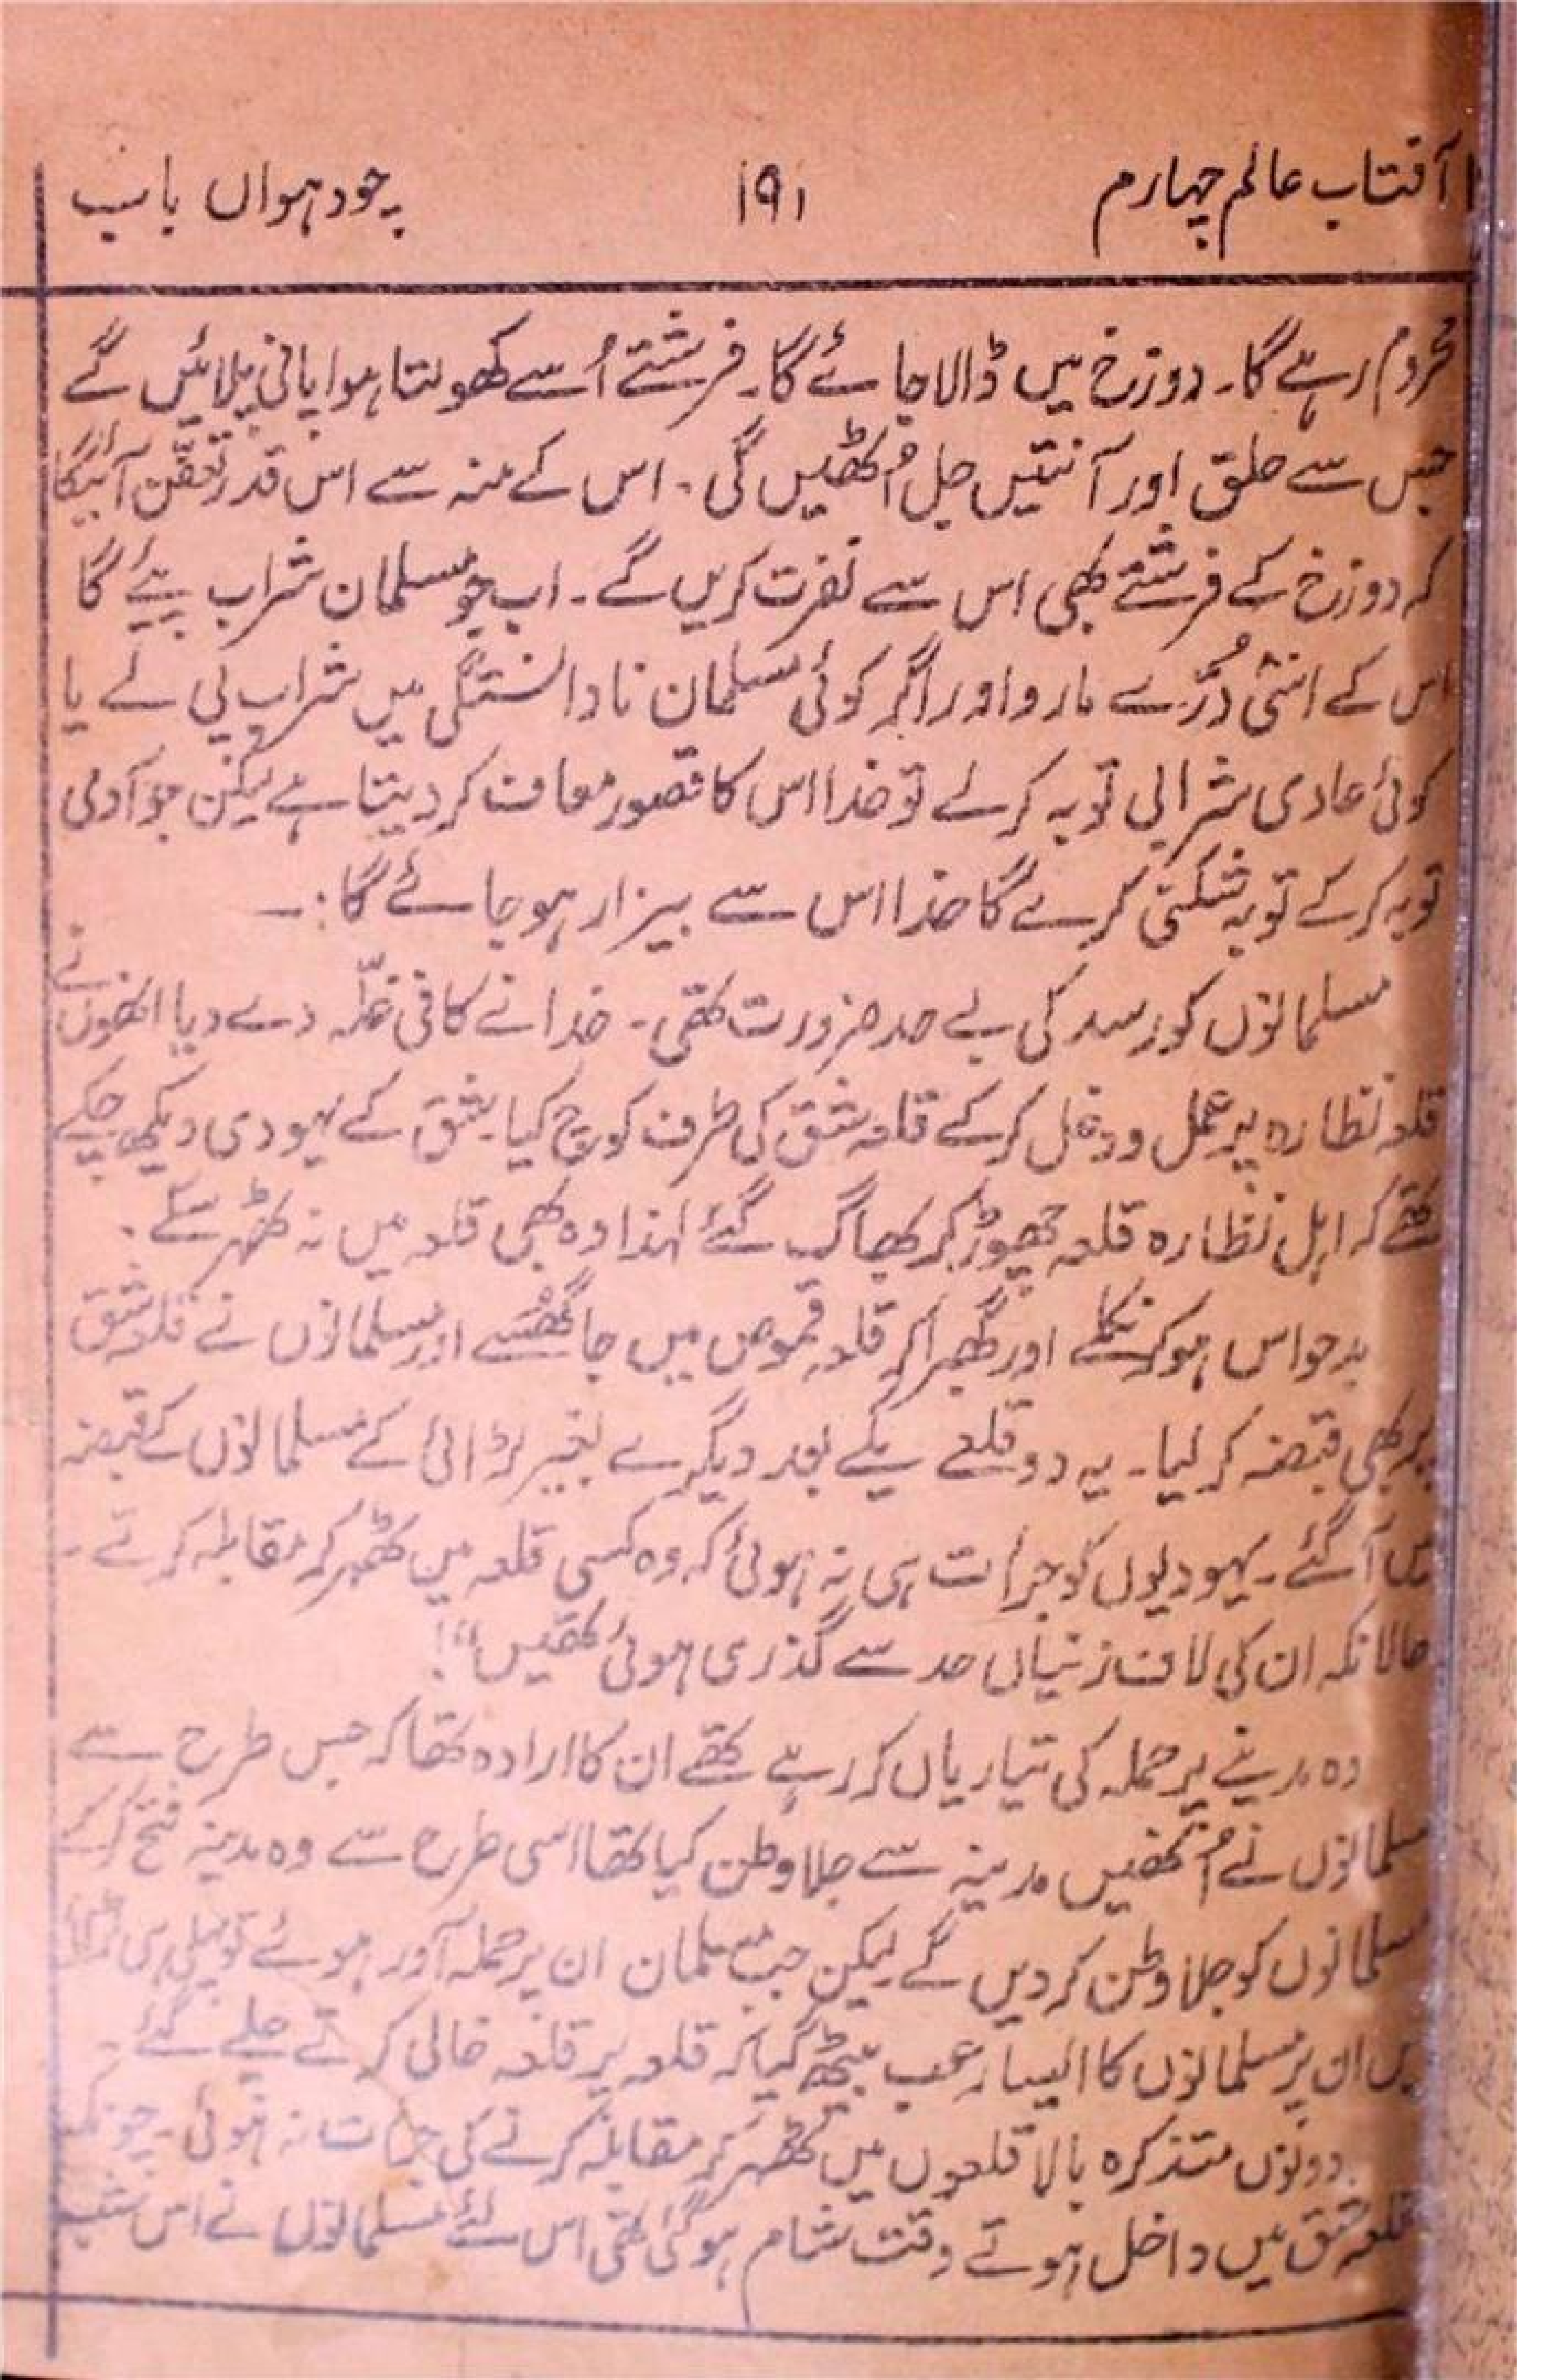 آفتاب عالم چہارم ۱۹۱ چودہواں باب
محروم رہے گا۔ دوزخ میں ڈالا جائے گا۔ فرشتے اُسے کھولتا ہوا پانی پلائیں گے
جس سے حلق اور آنتیں جل اُٹھیں گی۔ اس کے منہ سے اس قدر تعفّن آئیگا
کہ دوزخ کے فرشتے بھی اس سے نفرت کریں گے۔ اب جو مسلمان شراب پیئے گا
اس کے اسّی دُرّے مارو اور اگر کوئی مسلمان نادانستگی میں شراب پی لے یا
کوئی عادی شرابی توبہ کر لے تو خدا اس کا قصور معاف کر دیتا ہے لیکن جو آدمی
توبہ کر کے توبہ شکنی کرے گا خدا اس سے بیزار ہو جائے گا:۔
مسلمانوں کو رسد کی بے حد ضرورت تھی۔ خدا نے کافی غلّہ دے دیا انھوں نے
قلعہ نظارہ پر عمل و دخل کر کے قلعہ شق کی طرف کوچ کیا۔ شق کے یہودی دیکھ چکے
تھے کہ اہل نظارہ قلعہ چھوڑ کر بھاگ گئے لہذا وہ بھی قلعہ میں نہ ٹھہر سکے۔
بدحواس ہو کر نکلے اور گھبرا کر قلعہ قموص میں جا گھُسے اور مسلمانوں نے قلعہ شق
پر بھی قبضہ کر لیا۔ یہ دو قلعے یکے بعد دیگرے بغیر لڑائی کے مسلمانوں کے قبضہ
میں آ گئے۔ یہودیوں کو جرأت ہی نہ ہوئی کہ وہ کسی قلعہ میں ٹھہر کر مقابلہ کرتے۔
حالانکہ ان کی لاف زنیاں حد سے گذری ہوئی تھیں"!
وہ مدینے پر حملہ کی تیاریاں کر رہے تھے ان کا ارادہ تھا کہ جس طرح سے
مسلمانوں نے اُنھیں مدینہ سے جلاوطن کیا تھا اسی طرح سے وہ مدینہ فتح کر کے
مسلمانوں کو جلاوطن کر دیں گے لیکن جب مسلمان ان پر حملہ آور ہوئے تو پہلی ہی لڑائی
میں ان پر مسلمانوں کا ایسا رعب بیٹھ گیا کہ قلعہ پر قلعہ خالی کرتے چلے گئے۔
دونوں متذکرہ بالا قلعوں میں ٹھہر کر مقابلہ کرنے کی جرأت نہ ہوئی۔ چونکہ
قلعہ شق میں داخل ہوتے وقت شام ہو گئی تھی اس لئے مسلمانوں نے اس شب